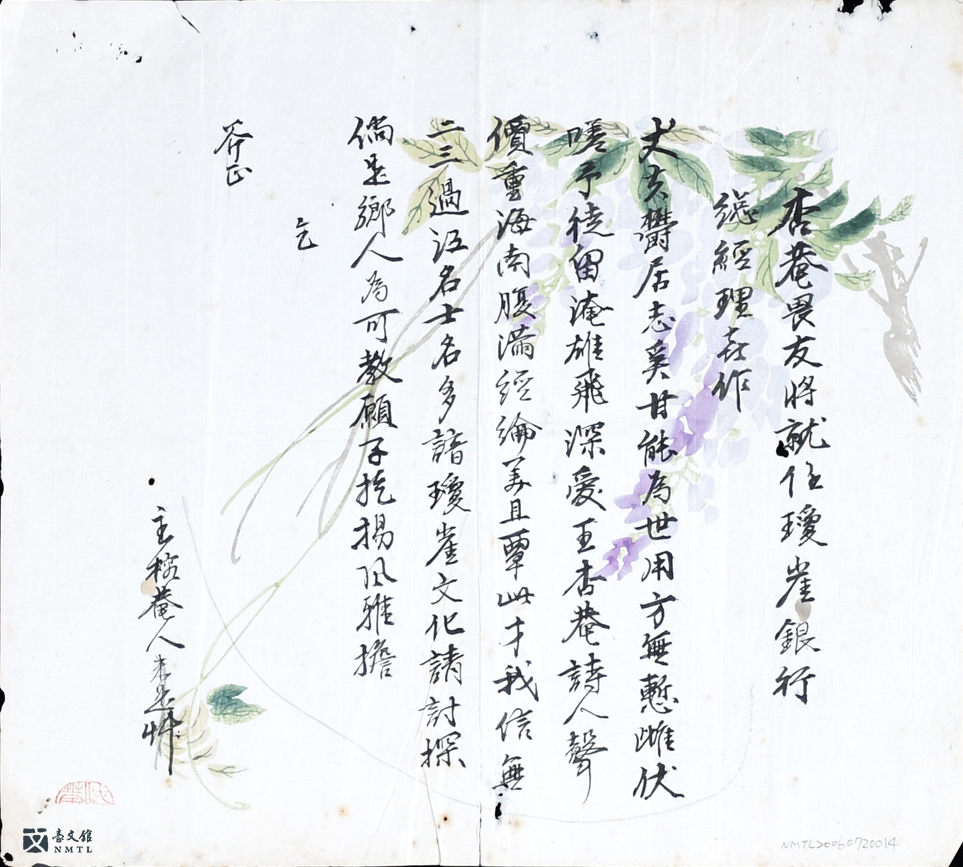 杏菴畏友將就任瓊崖銀行
總經理喜作
丈夫鬱居志奚甘能為世用方無慙雌伏
嗟予徒留淹雄飛深愛王杏菴詩人聲
價重海南腹滿經綸美且覃此才我信無
二三過江名士名多諳瓊崖文化請討探
倘是鄉人為可教願子扢揚風雅擔
乞
斧正
主榕菴人 未是艸
臺文館
NMTL
NMTL20060720014